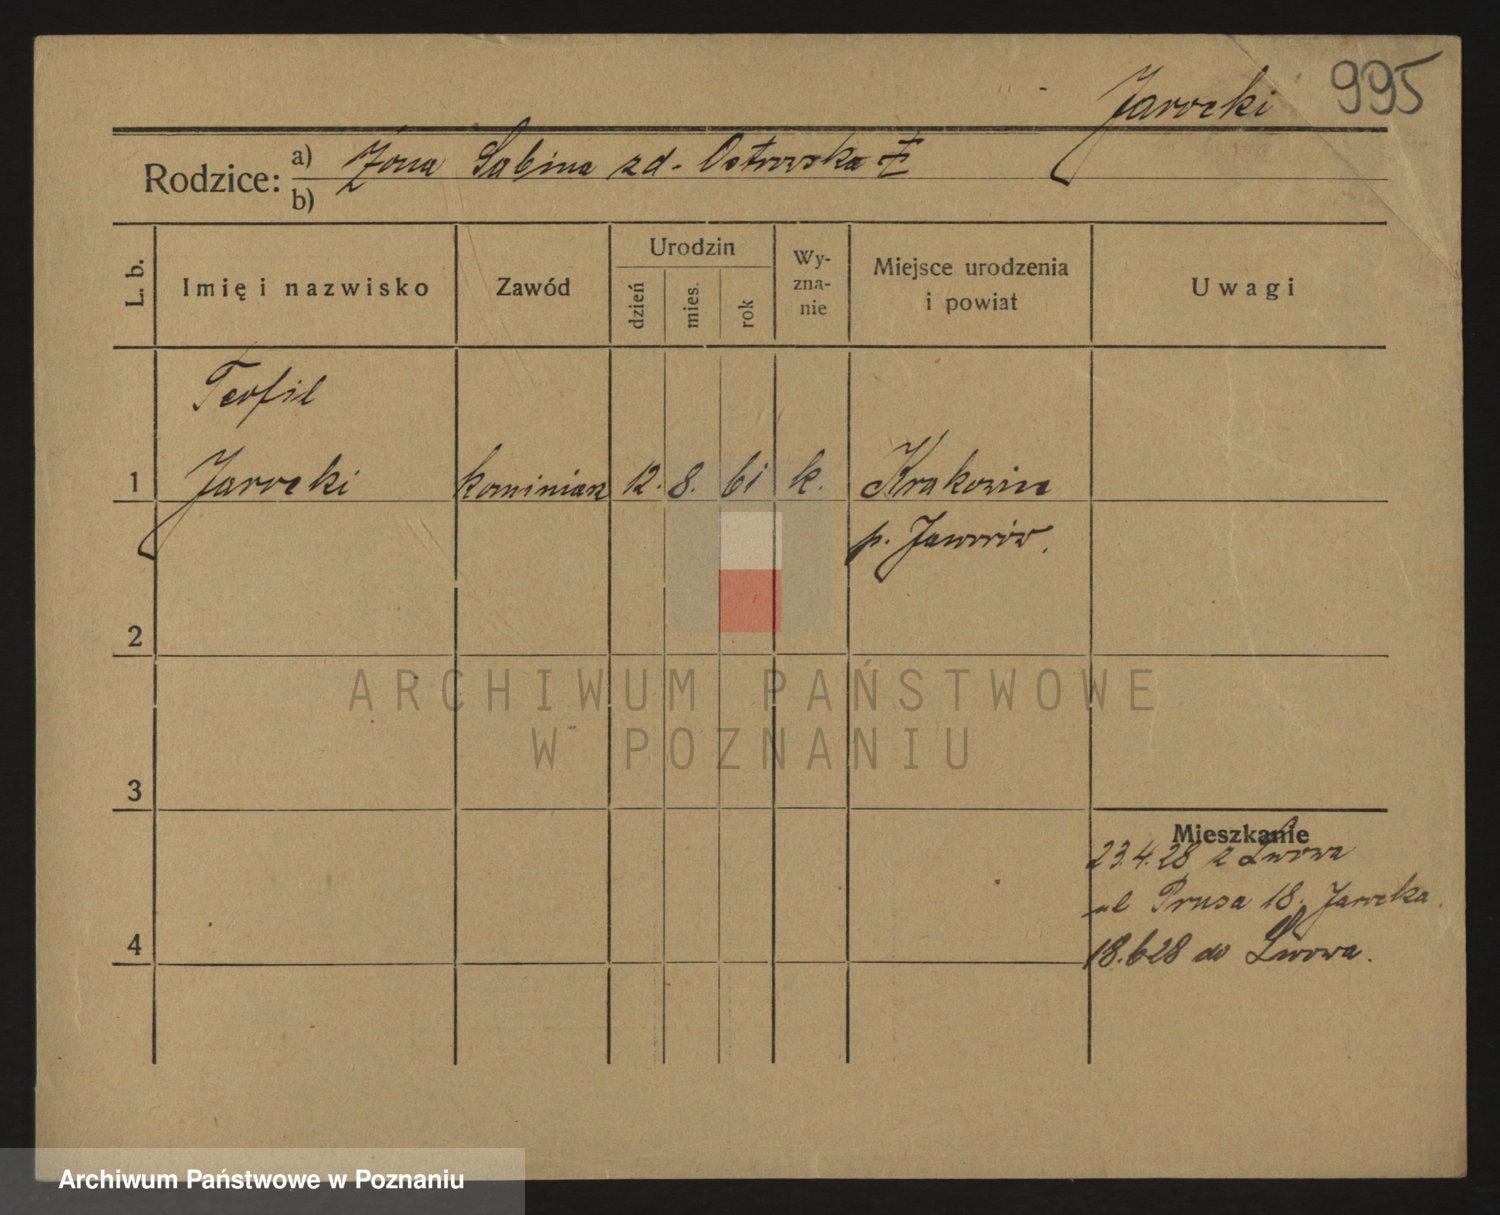 995
Jarocki
Rodzice: a) Żona Sabina zd. Ostrowska
b)
L. b. Imię i nazwisko Zawód Urodzin dzień mies. rok Wy-zna-nie Miejsce urodzenia i powiat Uwagi
Teofil
1 Jarocki kominiarz 12. 8. 61 k. Krakowiec
p. Jaworów.
2
ARCHIWUM PAŃSTWOWE
W POZNANIU
3
Mieszkanie
23.4.28 z Lwowa
ul Prusa 18. Jarocka.
4
18.628 do Lwowa.
Archiwum Państwowe w Poznaniu